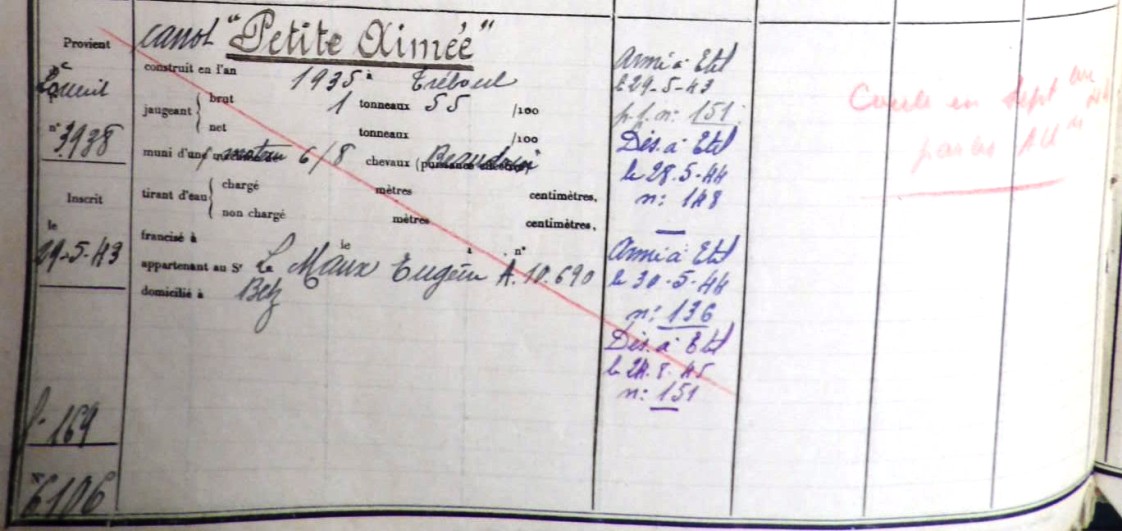 Provient
de
n° 3938
Inscrit
le
29-5-43
f° 169
N° 6106
canot "Petite Aimée"
construit en l'an 1935 à Tréboul
jaugeant { brut 1 tonneaux 55 /100
net tonneaux /100
muni d'un moteur 6/8 chevaux (
tirant d'eau { chargé mètres centimètres,
non chargé mètres centimètres,
francisé à le n°
appartenant au Sr Le Maux Eugène A. 10.690
domicilié à Belz
Armé à Etel
le 29-5-43
p.f. n: 151
Dés. à Etel
le 28.5-44
n: 148
Armé à Etel
le 30-5-44
n: 136
Dés. à Etel
le 24.8.45
n: 151
Coulé en Sept
par les All